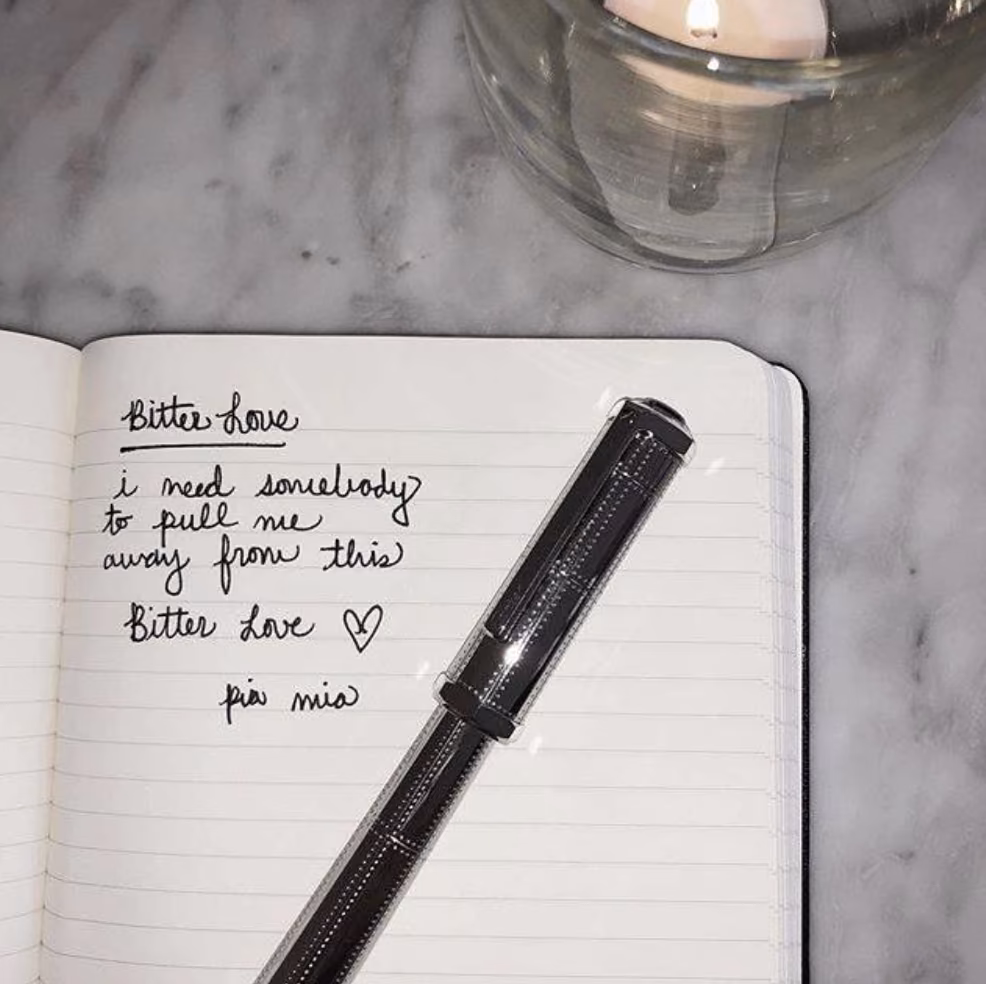 Bitter Love
i need somebody
to pull me
away from this
Bitter Love ♡
pia mia